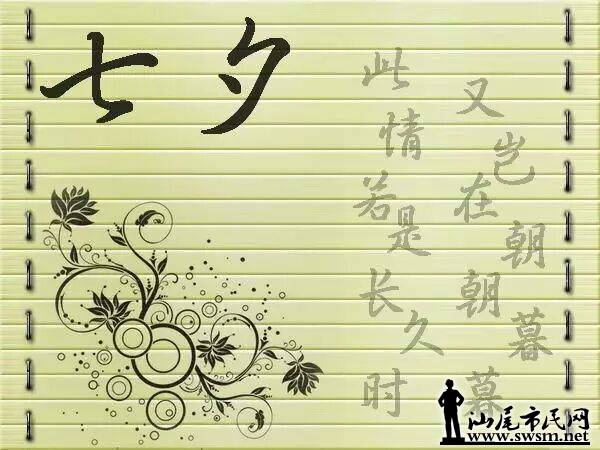 七夕
此情若是长久时
又岂在朝朝暮暮
汕尾市民网
www.swsm.net